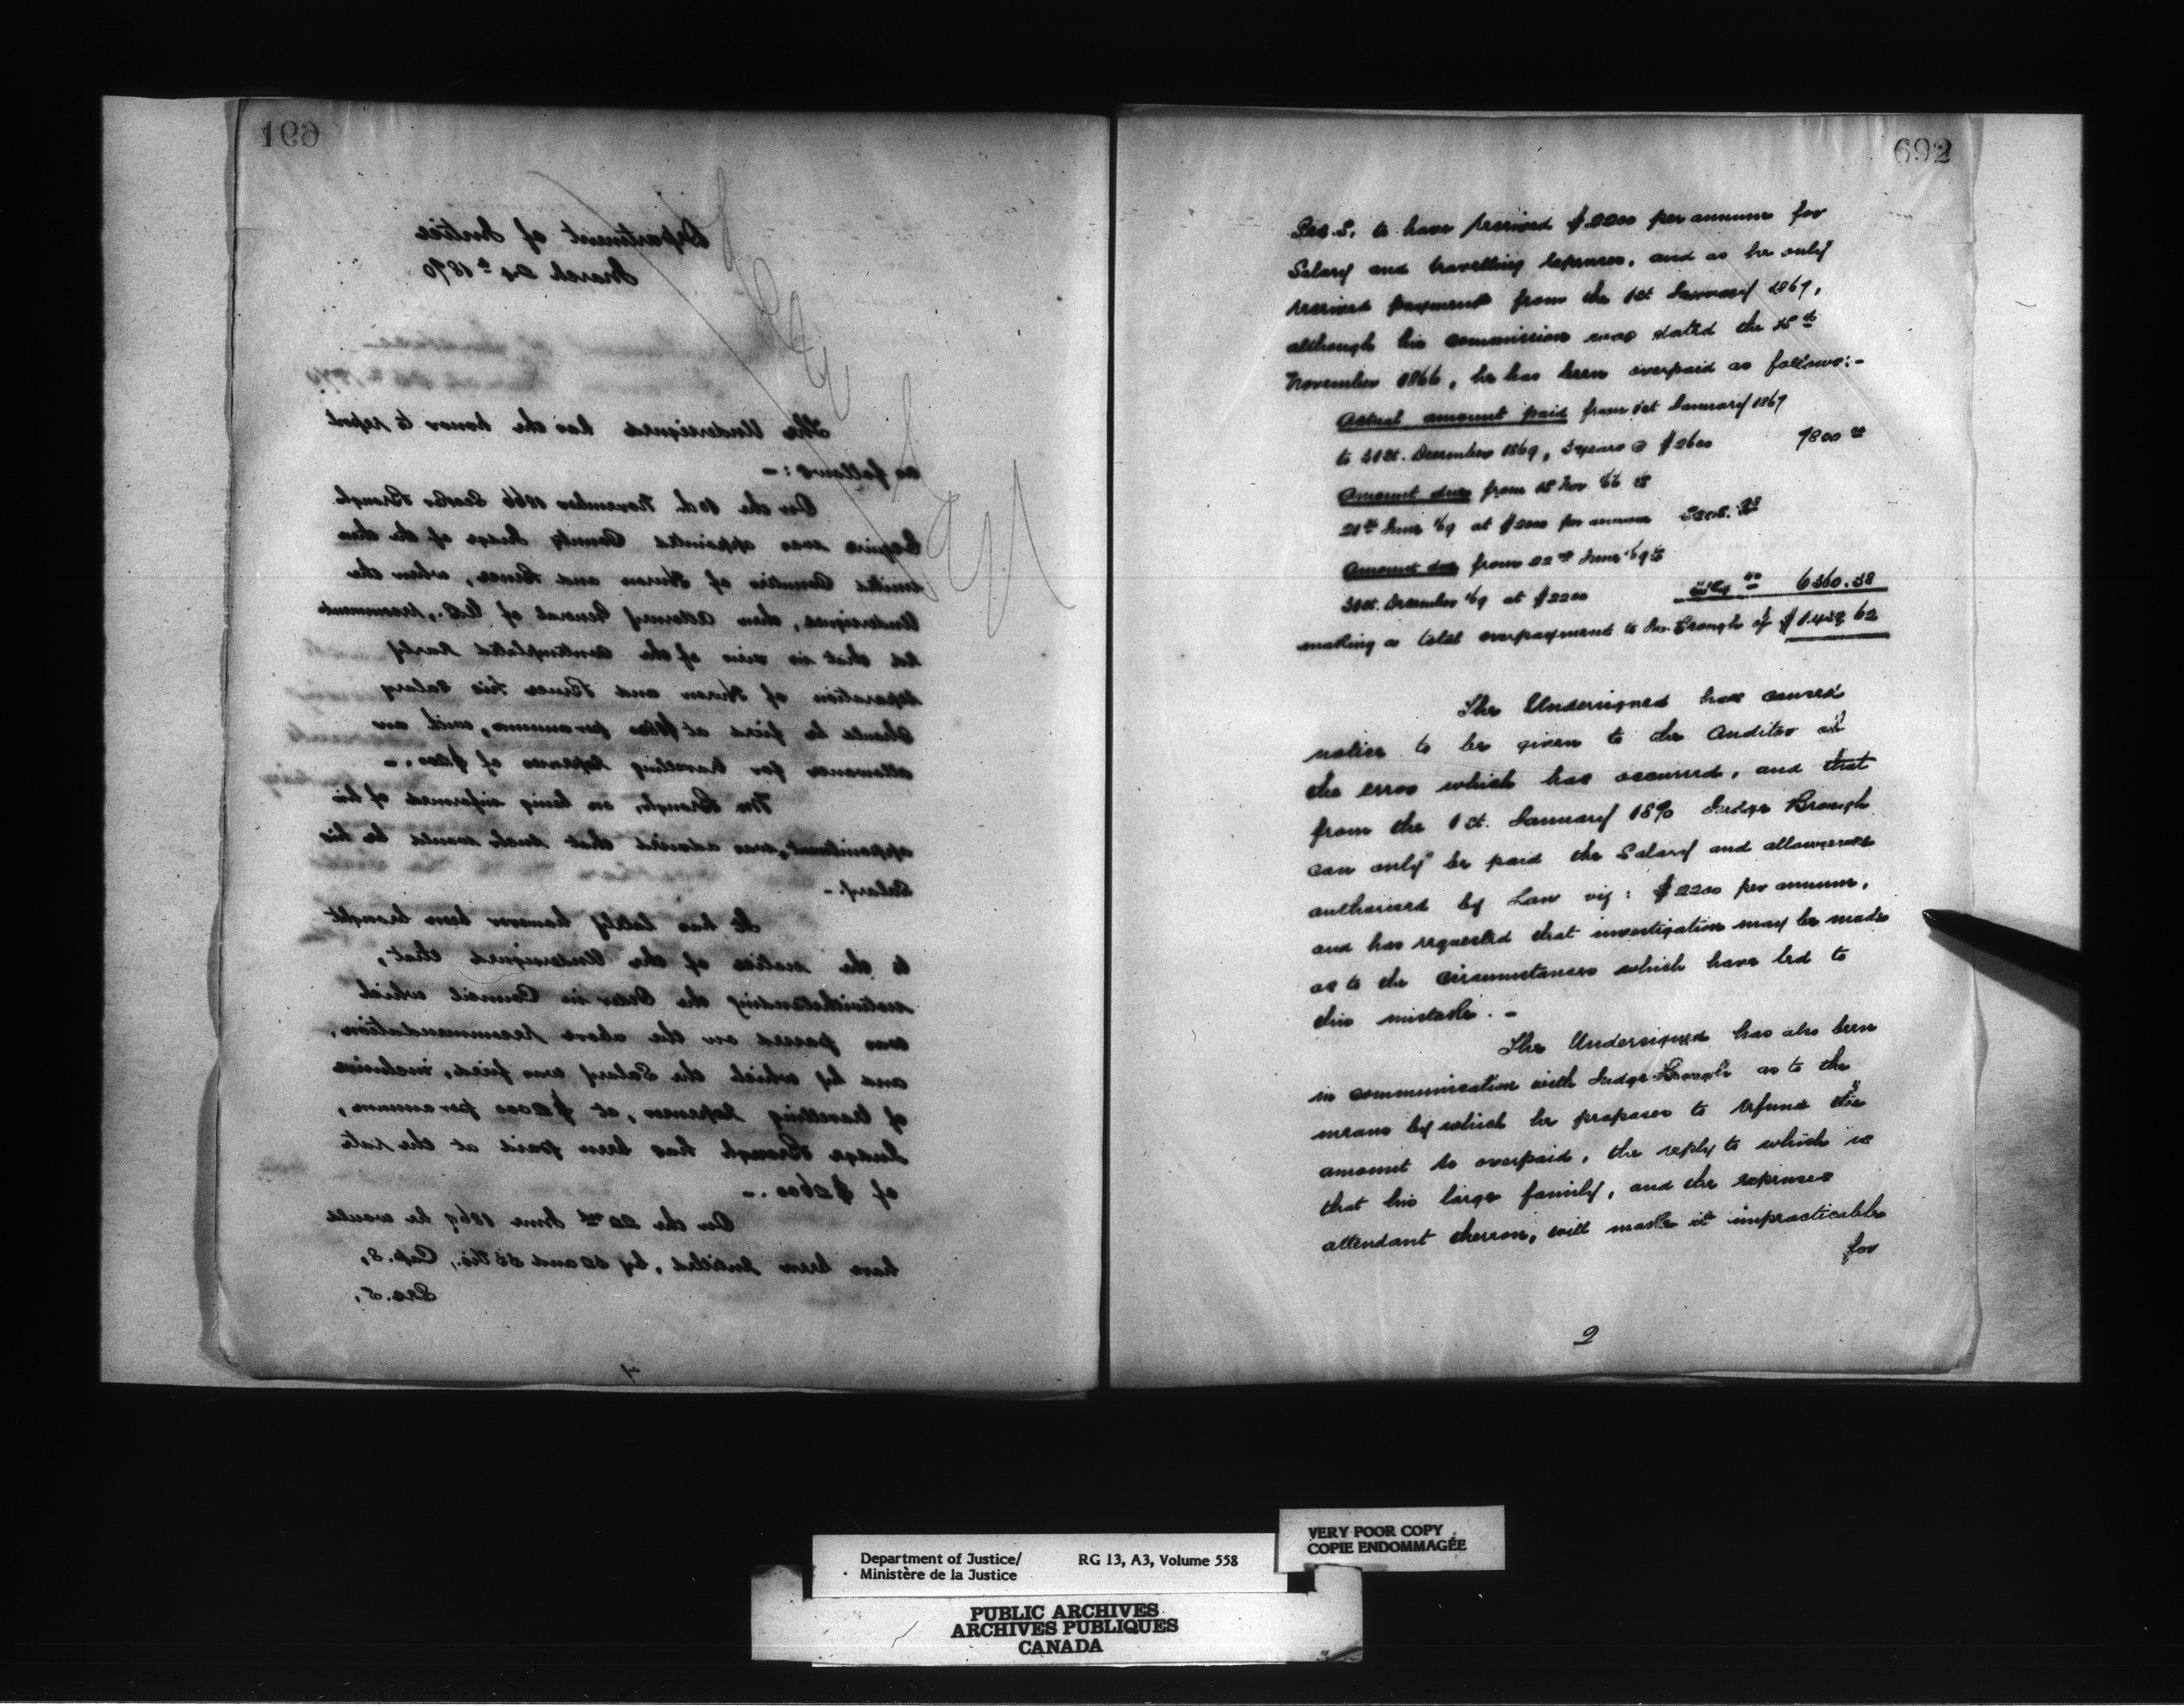 691
Department of Justice
March 24th 1870
The Undersigned has the honor to report
as follows:-
On the 10th November 1866 Secker Brough
Esquire was appointed County Judge of the then
united Counties of Huron and Bruce, when the
Undersigned, then Attorney General of U.C., recommend-
ed that in view of the contemplated early
separation of Huron and Bruce his salary
should be fixed at per annum, with an
allowance for travelling expenses of $200.-
Mr Brough, on being informed of his
appointment, was advised that such would be his
Salary.-
It has lately however been brought
to the notice of the Undersigned that,
notwithstanding the Order in Council which
was passed on the above recommendation,
and by which the Salary was fixed, inclusive
of travelling expenses, at $2000 per annum,
Judge Brough has been paid at the rate
of $2600.-
On the 22nd June 1869 he would
have been entitled, by 32 and 33 Vic., Cap. 8,
Sec. 5,
692
Sec. 5, to have received $2200 per annum for
Salary and travelling expenses, and as he only
received payment from the 1st January 1867,
although his commission was dated the
November 1866, he has been overpaid as follows:-
Actual amount paid from 1st January 1867
to 31st. December 1869, 3 years @ $2600 7800
Amount due from Nov 66 to
21st June 69 at $2000 per annum
Amount due from 22nd June 69 to
31st. December 69 at $2200 6360.38
making a total overpayment to Mr. Brough of $1439 62
The Undersigned has caused
notice to be given to the Auditor of
the error which has occurred, and that
from the 1st. January 1870 Judge Brough
can only be paid the Salary and allowances
authorised by Law viz: $2200 per annum,
and has requested that investigation may be made
as to the circumstances which have led to
this mistake.-
The Undersigned has also been
in communication with Judge Brough as to the
means by which he proposes to refund the
amount so overpaid, the reply to which is
that his large family, and the expenses
attendant thereon, will make it impracticable
for
2
Department of Justice/ RG 13, A3, Volume 558
Ministère de la Justice
VERY POOR COPY
COPIE ENDOMMAGÉE
PUBLIC ARCHIVES
ARCHIVES PUBLIQUES
CANADA